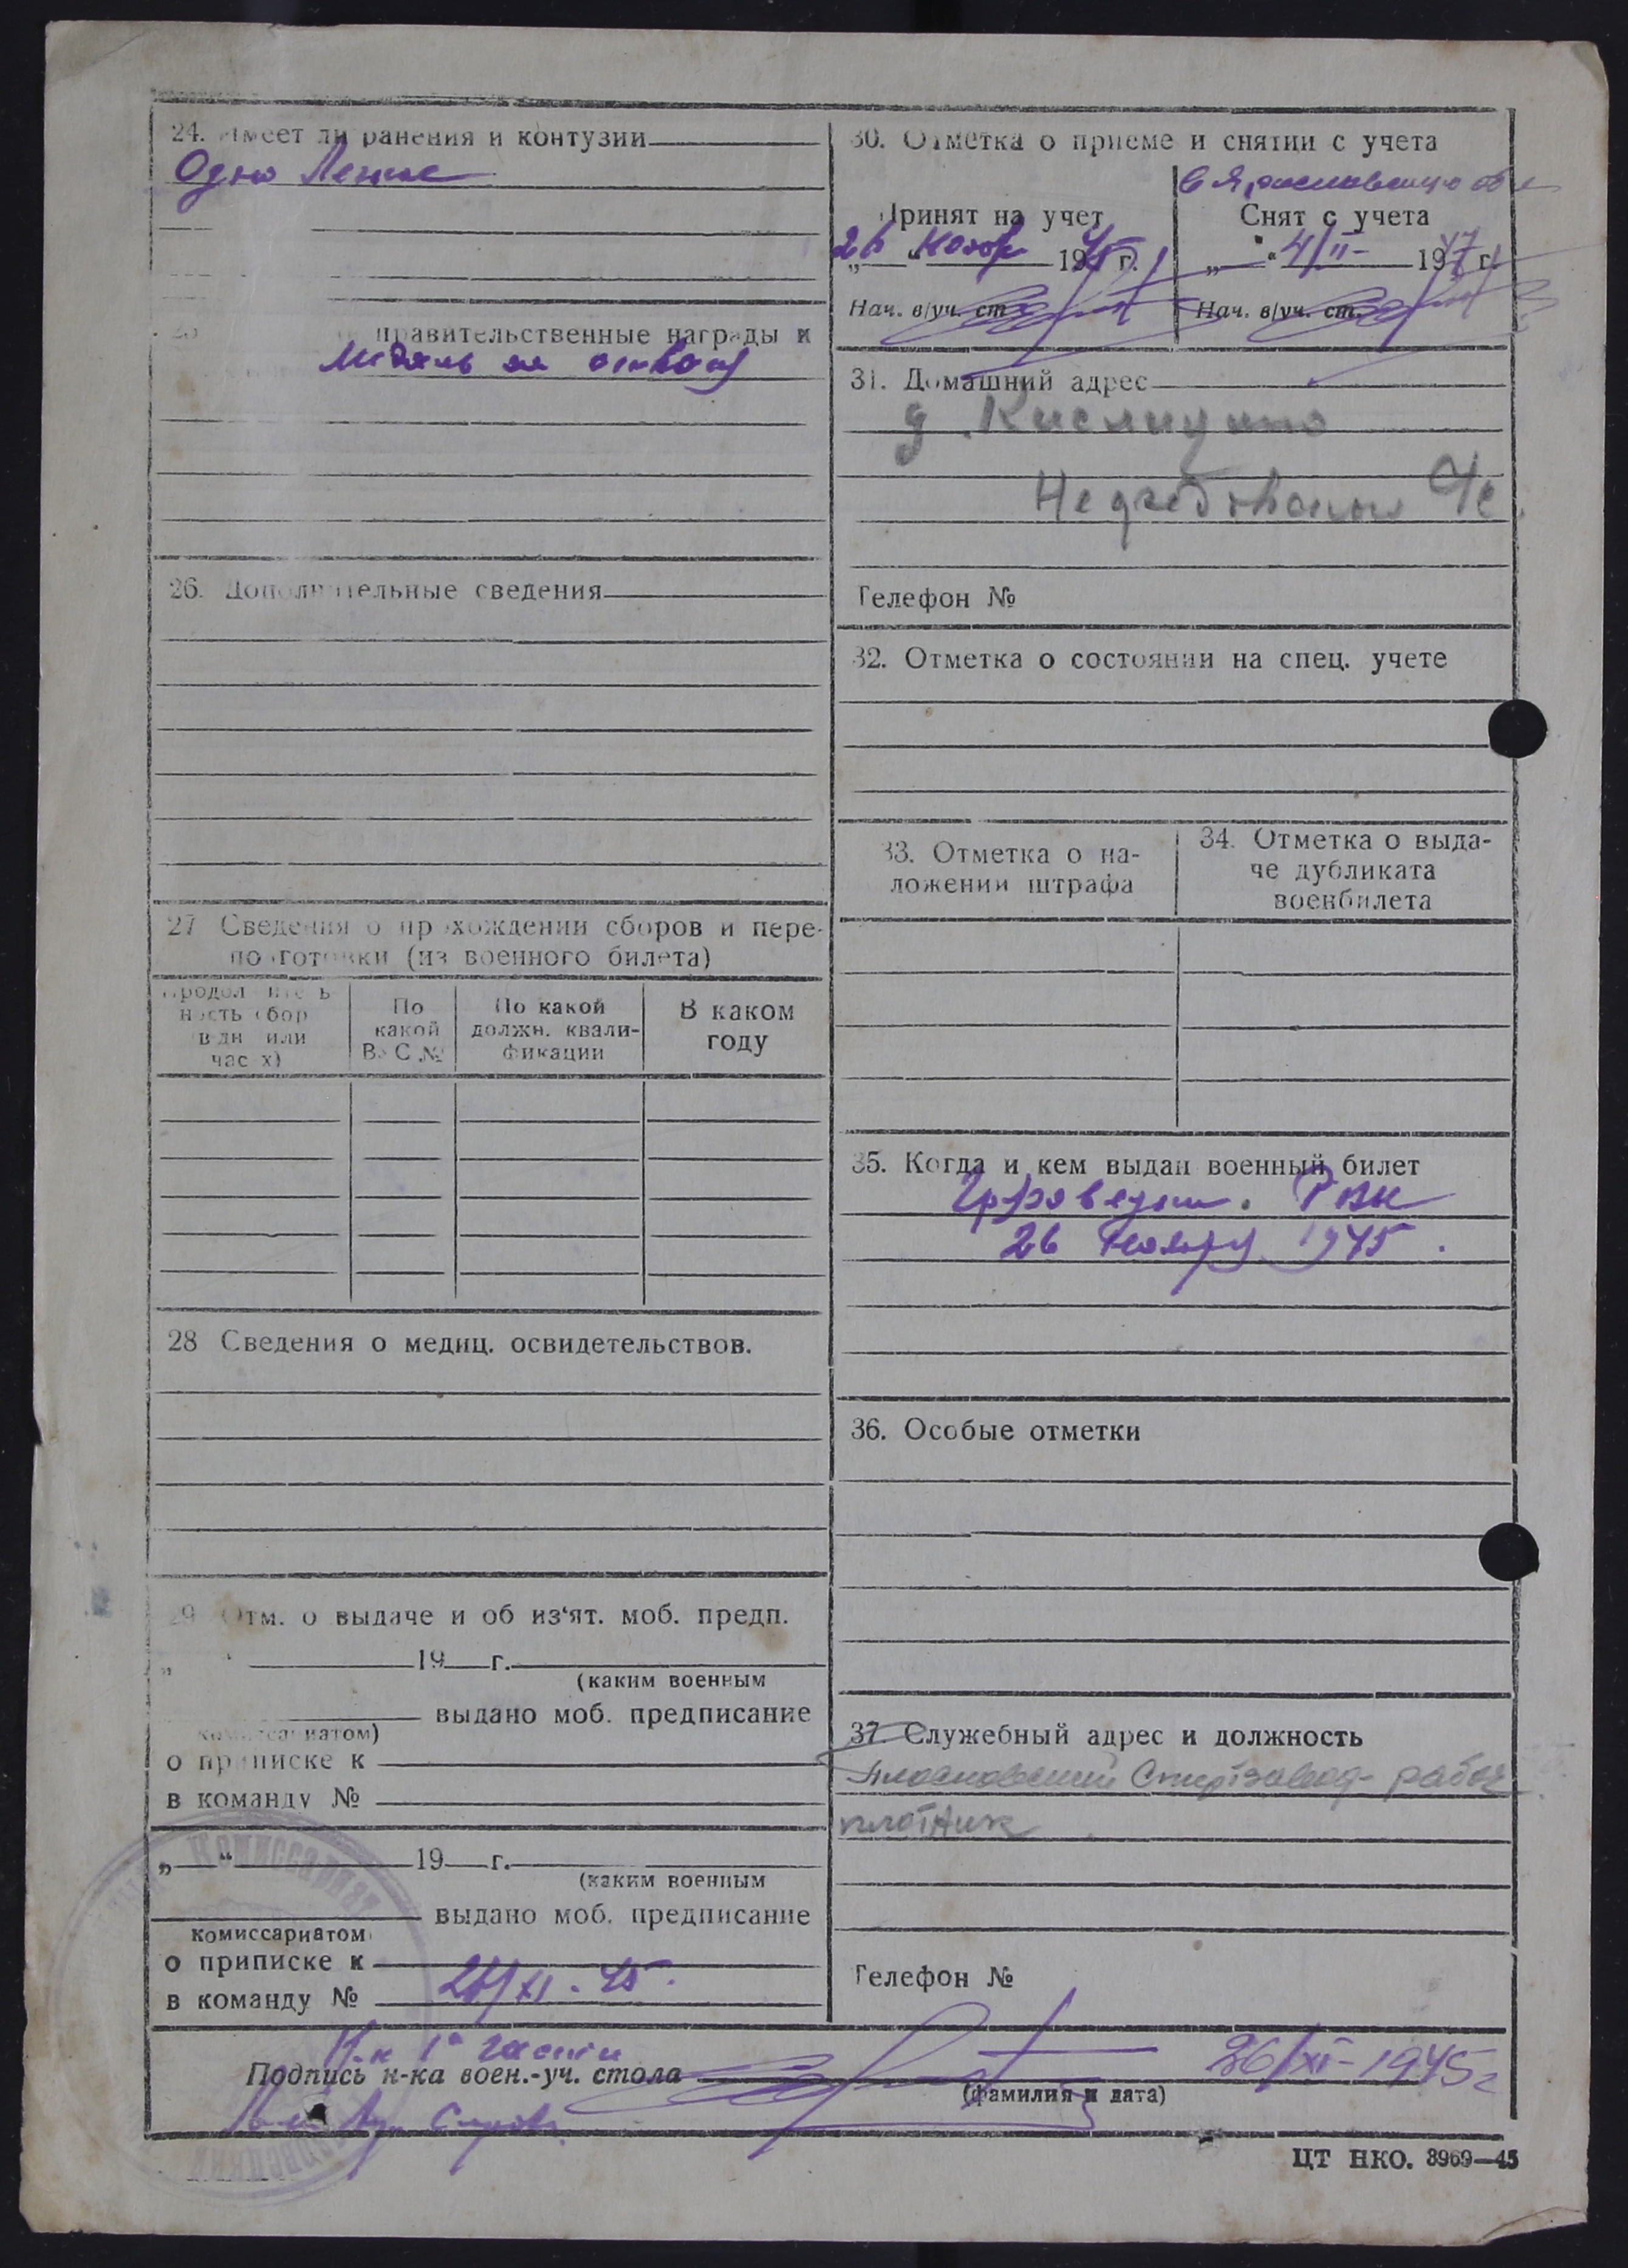 24. Имеет ли ранения и контузии
Одно Легкое
правительственные награды и
Медаль за отвагу
26. Дополнительные сведения
27 Сведения о прохождении сборов и пере-
подготовки (из военного билета)
Продолжитель
ность сбор
в дн или
часах)
По
какой
ВУС №
По какой
должн. квали-
фикации
В каком
году
28 Сведения о медиц. освидетельствов.
29 Отм. о выдаче и об из'ят. моб. предп.
„ “ 19 г.
(каким военным
выдано моб. предписание
комиссариатом)
о приписке к
в команду №
„ “ 19 г.
(каким военным
выдано моб. предписание
комиссариатом
о приписке к
в команду №
/XI - 45.
30. Отметка о приеме и снятии с учета
в Ярославскую обл
Принят на учет
„26“ Нояб 1945 г.
Нач. в/уч. ст.
Снят с учета
„ “ 4/II- 1947 г.
Нач. в/уч. ст.
31. Домашний адрес
д. Кислицино
с/с
Телефон №
32. Отметка о состоянии на спец. учете
33. Отметка о на-
ложении штрафа
34. Отметка о выда-
че дубликата
военбилета
35. Когда и кем выдан военный билет
РВК
26 Ноября 1945.
36. Особые отметки
37. Служебный адрес и должность
Спиртзавод - рабоч
плотник
Телефон №
Н-к 1й части
Подпись н-ка воен.-уч. стола
26/XI-1945г
(фамилия и дата)
Комиссариат
ЦТ НКО. 3969—45